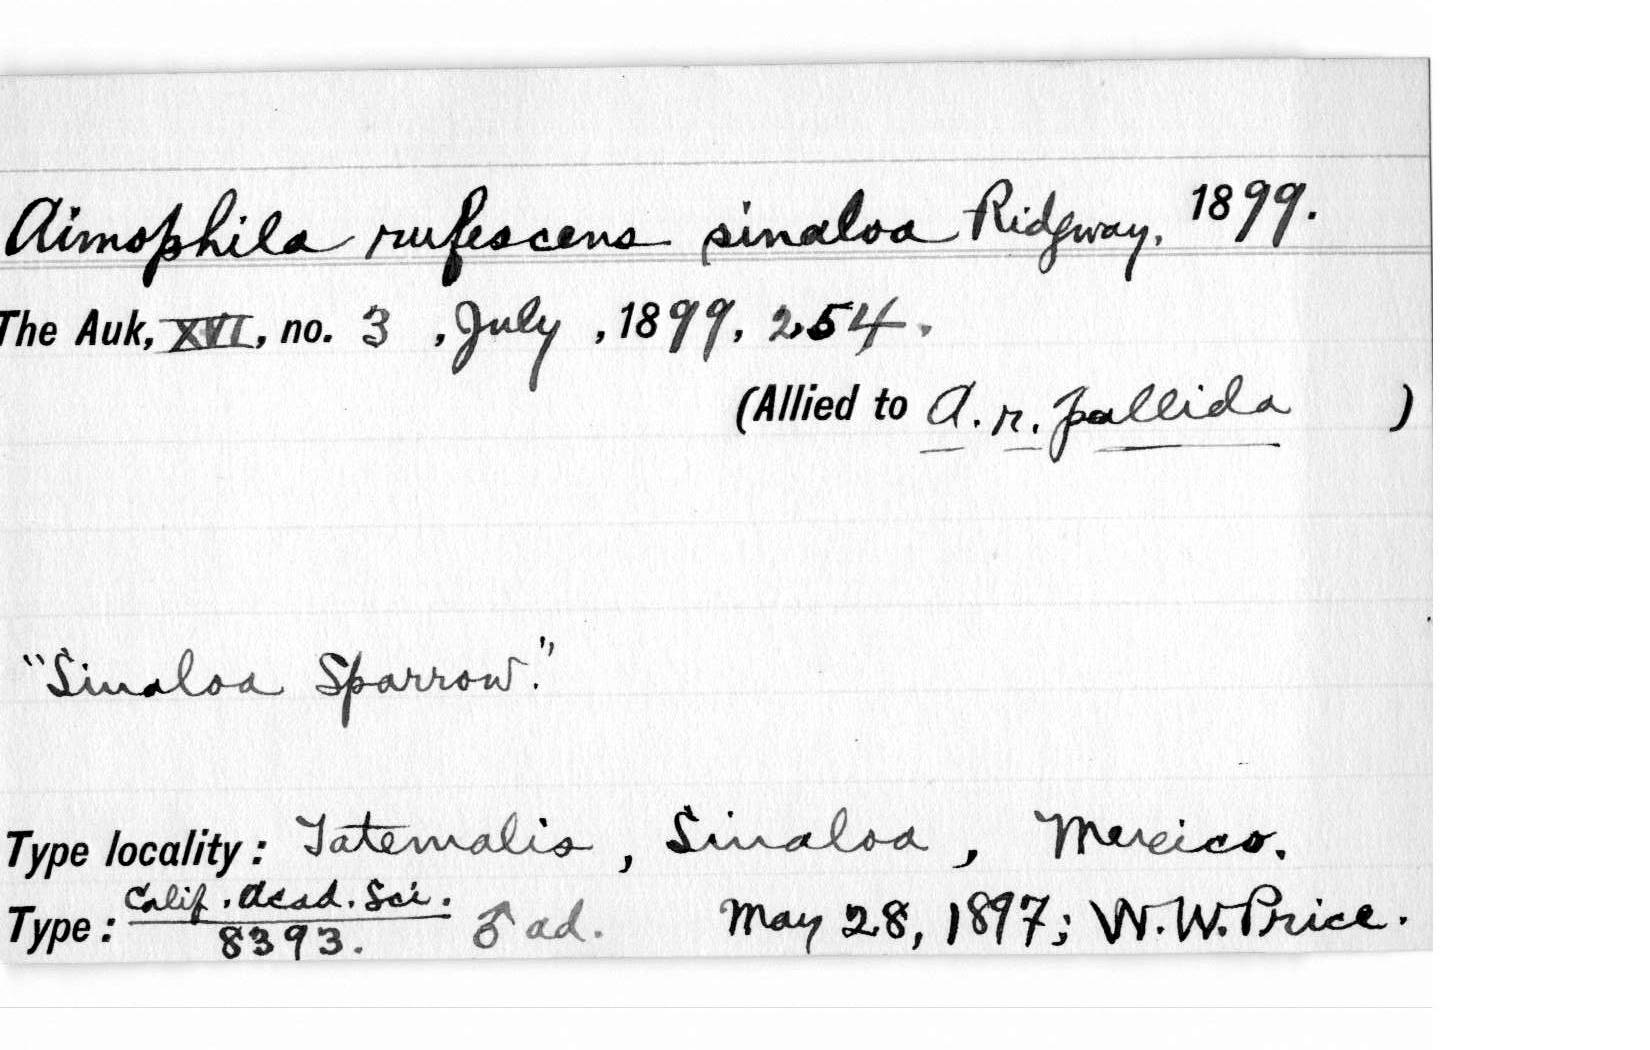 Aimophila rufescens sinaloa Ridgway, 1899.
The Auk, XVI, no. 3, July, 1899, 254.
(Allied to A. r. pallida )
"Sinaloa Sparrow."
Type locality: Tatemalis, Sinaloa, Mexico.
Type: Calif. Acad. Sci. ♂ ad. May 28, 1897; W. W. Price.
8393.